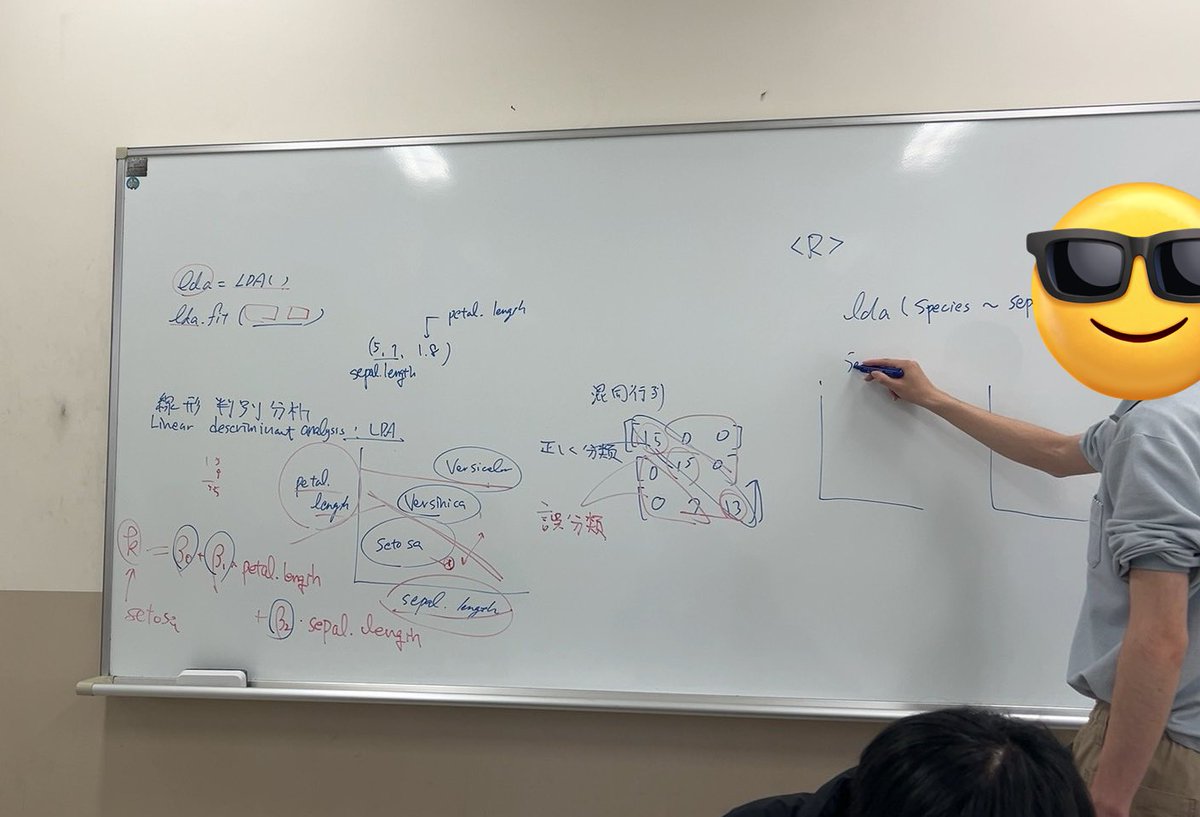 lda = LDA()
lda.fit (      )
petal. length
(5.1, 1.8)
sepal.length
線形 判別分析
Linear descriminant analysis : LDA
petal.
length
Versicolor
Versinica
Setosa
sepal. length
k = β0 + β1 · petal.length
+ β2 · sepal.length
setosa
混同行列
正しく分類
15 0 0
0 15 0
0 2 13
誤分類
<R>
lda (Species ~ sep